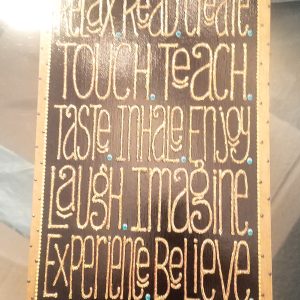 Relax. Read. Create.
Touch. Teach.
Taste. Inhale. Enjoy.
Laugh. Imagine.
Experience. Believe.